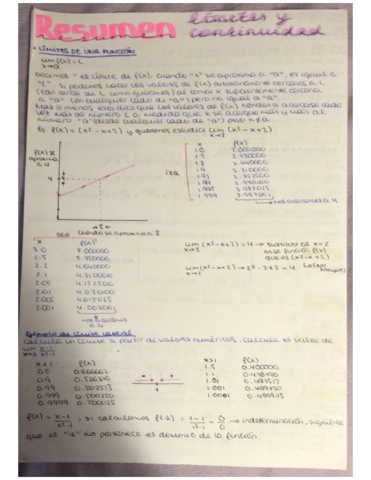 Resumen límites y
continuidad
LÍMITES DE UNA FUNCIÓN
lim f(x) = L
x→a
Decimos "el límite de f(x), cuando "x" se aproxima a "a", es igual a
"L" si podemos hacer los valores de f(x) arbitrariamente cercanos a L
(tan cerca de L como queramos) al tomar x suficientemente cercana
a "a" (en cualquier lado de "a") pero no igual a "a".
Mas o menos esto dice que los valores de f(x) tienden a acercarse cada
vez más al número L a medida que x se acerca más y más al
número "a" (desde cualquier lado de "a") pero x≠a.
Ej. f(x) = (x²-x+2) y queremos estudiar lim (x²-x+2)
x→2
f(x) se
aproxima
a 4
4
2
cuando se aproxima a 2
IZQ
x f(x)
1.0 2.000000
1.5 2.750000
1.8 3.440000
1.9 3.710000
1.95 3.852500
1.99 3.970100
1.995 3.985025
1.999 3.997001
nos acercamos a 4
DER
x f(x)
3.0 8.000000
2.5 5.750000
2.2 4.640000
2.1 4.310000
2.05 4.152500
2.01 4.030100
2.005 4.015025
2.001 4.003001
nos acercamos
a 4
lim (x²-x+2) = 4 → sustituir el x=2
x→2 en la función f(x)
que es (x²-x+2)
lim (x²-x+2) = 2²-2+2 = 4
x→2
Ejemplo de límite lateral
Calcula un límite a partir de valores numéricos, calcula el valor de
lim x-1
x→1 x²-1
x<1 f(x)
0.5 0.666667
0.9 0.526316
0.99 0.502513
0.999 0.500250
0.9999 0.500025
1
x>1 f(x)
1.5 0.400000
1.1 0.476190
1.01 0.497512
1.001 0.499750
1.0001 0.499975
f(x) = x-1/x²-1 ; si calculamos f(1) = 1-1/1²-1 = 0/0 → indeterminación, significa
que el "1" no pertenece al dominio de la función.